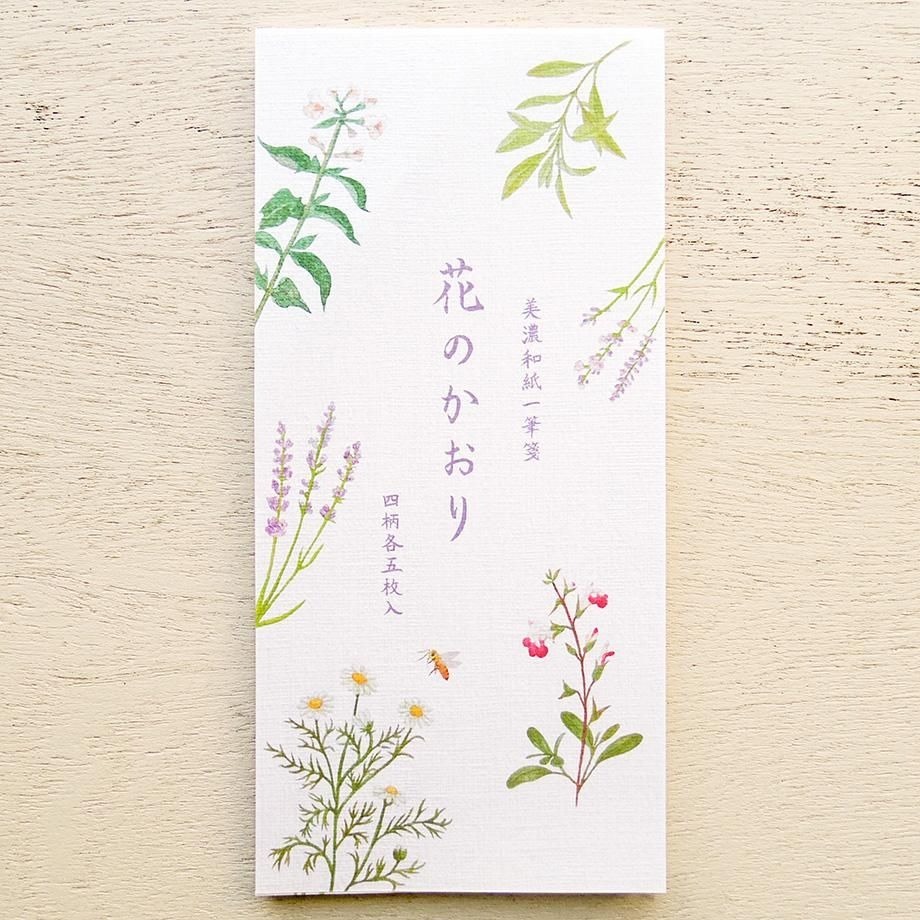 美濃和紙一筆箋
花のかおり
四柄各五枚入